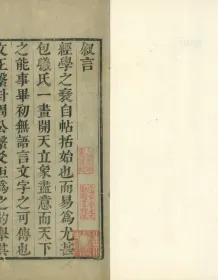 叙言
經學之衰自帖括始也而易爲尤甚
包羲氏一畫開天立象盡意而天下
之能事畢初無語言文字之可傳也
文王繫彖周公繫爻更爲之約舉其